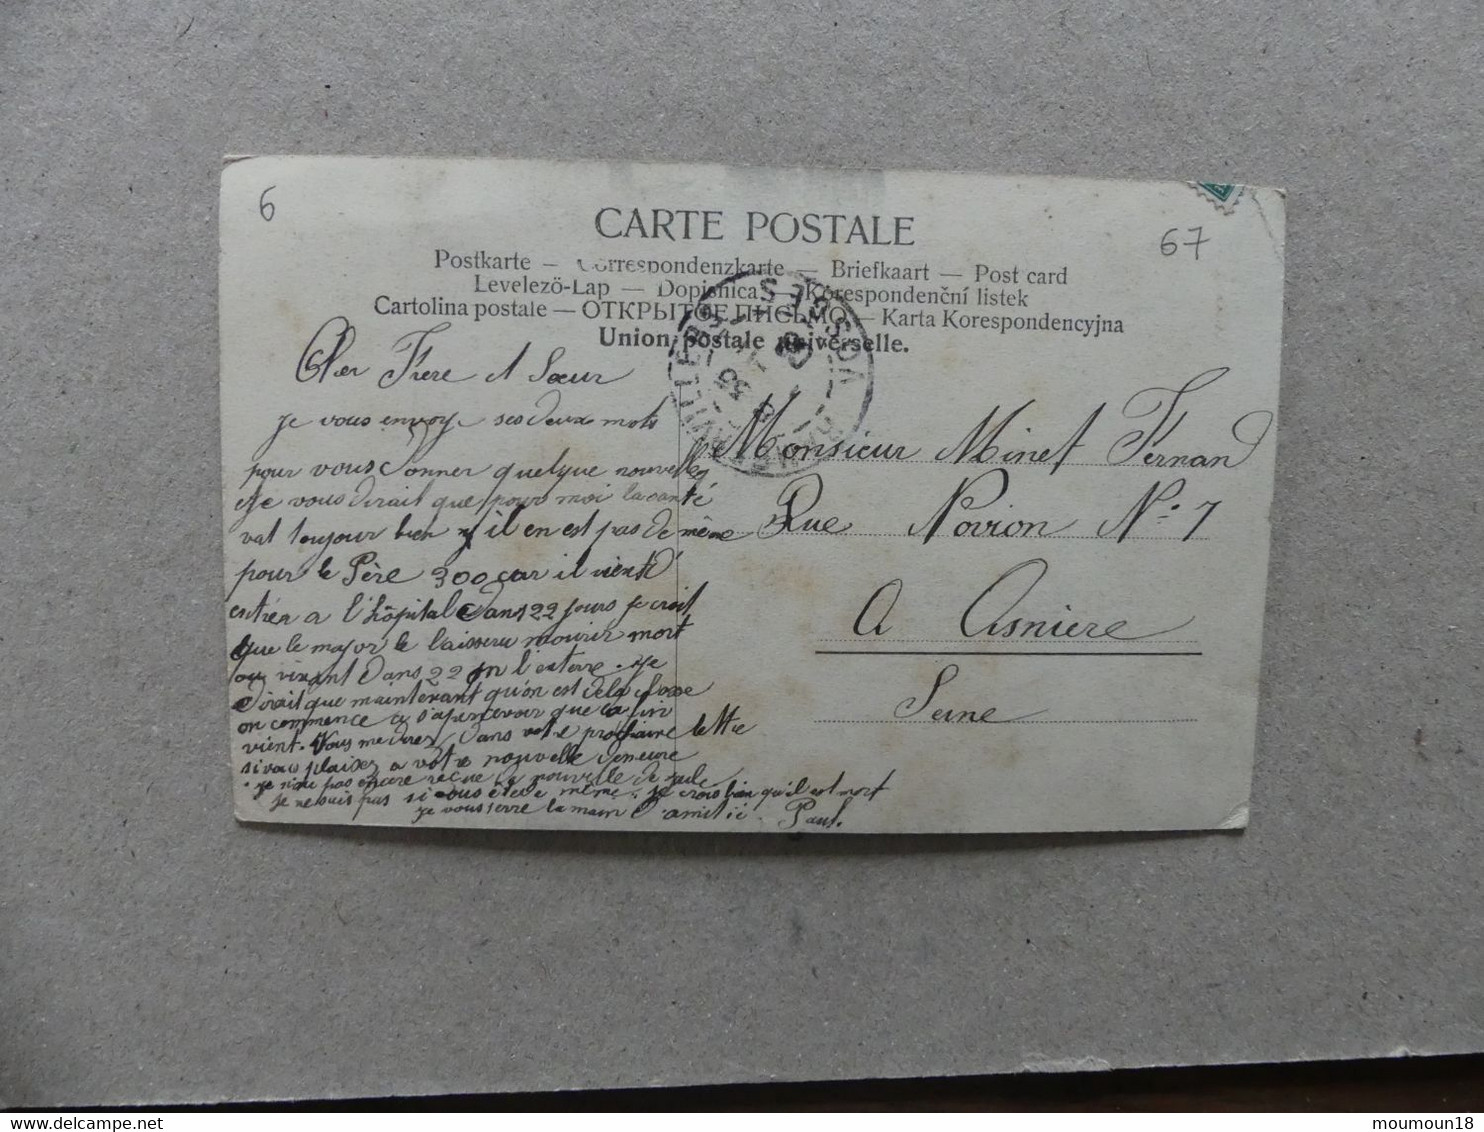 6
67
CARTE POSTALE
Postkarte — Correspondenzkarte — Briefkaart — Post card
Levelező-Lap — Dopisnica — Korespondenční listek
Cartolina postale — ОТКРЫТОЕ ПИСЬМО — Karta Korespondencyjna
Union postale universelle.
VOSGES
Cher Frere et Sœur
je vous envoye ses deux mots
pour vous donner quelque nouvelles
et je vous dirait que pour moi la santé
vat toujour bien il en est pas de même
pour le Père 300 car il vient d'
entrer a l'hôpital dans 22 jours je croit
que le major le laissera mourir mort
ou vivant dans 22 on l'enterre. je
dirait que maintenant qu'on est de la classe
on commence a s'apercevoir que la fin
vient. Vous me direz dans votre prochaine lettre
si vous plaisez a votre nouvelle demeure
je n'ai pas encore reçue de nouvelle de
je ne suis pas si vous étede même. je crois bien qu'il est mort
je vous serre la main d'amitié. Paul.
Monsieur Minet Fernan
Rue Novion N° 7
A Asniere
Seine
moumoun18